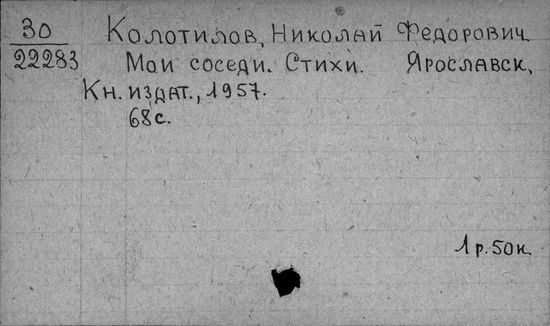 30
22283
Колотилов, Николай Федорович.
Мои соседи. Стихи. Ярославск,
Кн. издат., 1957.
68с.
1р.50к.